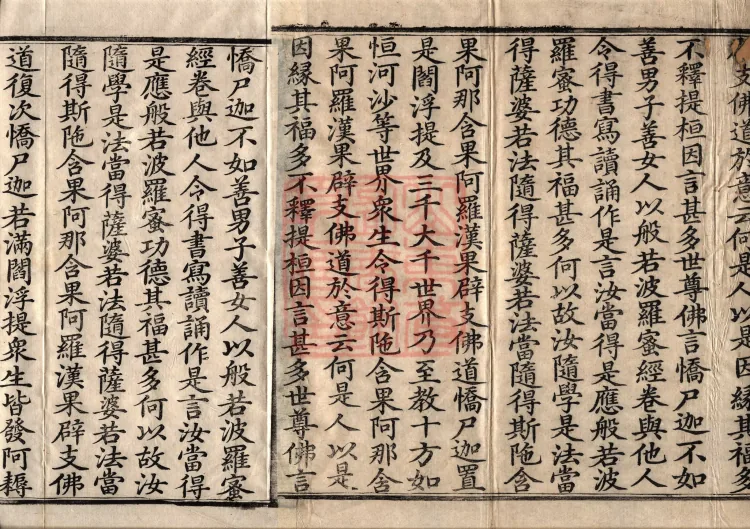 支佛道於意云何是人以是因緣其福多
不釋提桓因言甚多世尊佛言憍尸迦不如
善男子善女人以般若波羅蜜經卷與他人
令得書寫讀誦作是言汝當得是應般若波
羅蜜功德其福甚多何以故汝隨學是法當
得薩婆若法隨得薩婆若法當隨得斯陁含
果阿那含果阿羅漢果辟支佛道憍尸迦置
是閻浮提及三千大千世界乃至教十方如
恒河沙等世界衆生令得斯陁含果阿那含
果阿羅漢果辟支佛道於意云何是人以是
因緣其福多不釋提桓因言甚多世尊佛言
憍尸迦不如善男子善女人以般若波羅蜜
經卷與他人令得書寫讀誦作是言汝當得
是應般若波羅蜜功德其福甚多何以故汝
隨學是法當得薩婆若法隨得薩婆若法當
隨得斯陁含果阿那含果阿羅漢果辟支佛
道復次憍尸迦若滿閻浮提衆生皆發阿耨